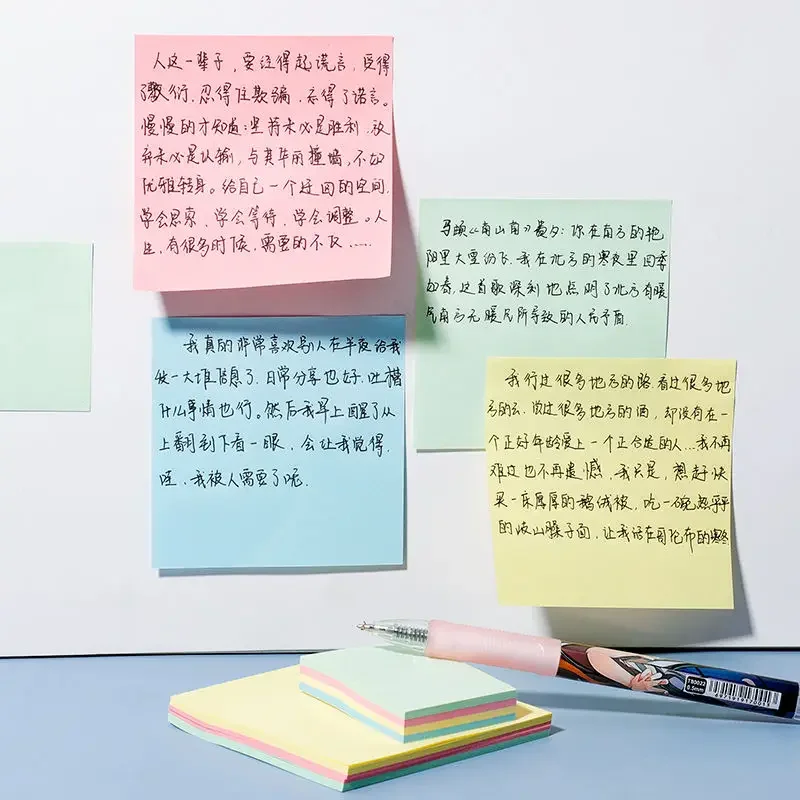 人这一辈子，要经得起谎言，受得
了敷衍，忍得住欺骗，忘得了诺言。
慢慢的才知道：坚持未必是胜利，放
弃未必是认输，与其华丽撞墙，不如
优雅转身。给自己一个迂回的空间，
学会思索，学会等待，学会调整。人
生，有很多时候，需要的不仅……
《南山南》最夕：你在南方的艳
阳里大雪纷飞，我在北方的寒夜里四季
如春，这首歌深刻地点明了北方有暖
气南方无暖气所导致的人民矛盾.
我真的非常喜欢别人在半夜给我
发一大堆信息了，日常分享也好，吐槽
什么事情也行。然后我早上醒了从
上翻到下看一眼，会让我觉得，
哇，我被人需要了呢.
我行过很多地方的路，看过很多地
方的云，喝过很多地方的酒，却没有在一
个正好年龄爱上一个正合适的人...我不再
难过也不再遗憾，我只是，想赶快
买一床厚厚的鹅绒被，吃一碗热乎乎
的岐山臊子面，让我活在哥伦布的寒冬
TB0022
0.5mm